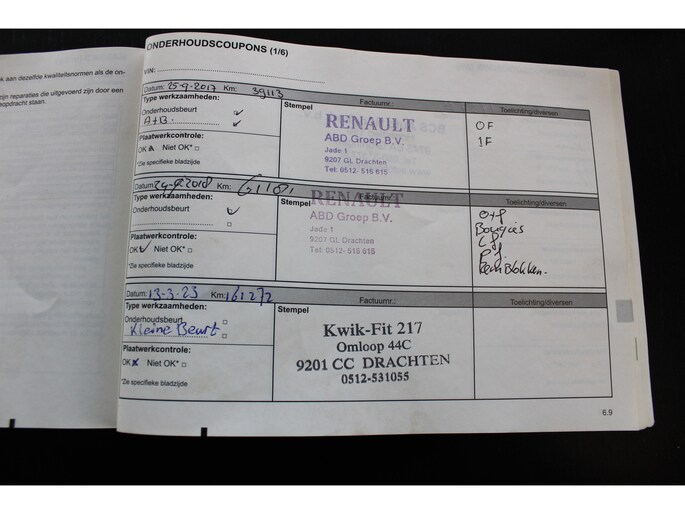 k aan dezelfde kwaliteitsnormen als de on-
zijn reparaties die uitgevoerd zijn door een
opdracht staan.
ONDERHOUDSCOUPONS (1/6)
VIN:
Datum: 25-9-2017 Km: 39113
Type werkzaamheden:
Onderhoudsbeurt
A+B.
Plaatwerkcontrole:
OK Niet OK*
*Zie specifieke bladzijde
Stempel
Factuurnr.:
RENAULT
ABD Groep B.V.
Jade 1
9207 GL Drachten
Tel: 0512- 515 615
Toelichting/diversen
OF
IF
Datum: 24-9-2018 Km:
Type werkzaamheden:
Onderhoudsbeurt
Plaatwerkcontrole:
OK Niet OK*
*Zie specifieke bladzijde
Stempel
Factuurnr.:
RENAULT
ABD Groep B.V.
Jade 1
9207 GL Drachten
Tel: 0512- 515 615
Toelichting/diversen
Bougies
Datum: 13-3-23 Km: 161272
Type werkzaamheden:
Onderhoudsbeurt
Kleine Beurt
Plaatwerkcontrole:
OK Niet OK*
*Zie specifieke bladzijde
Stempel
Factuurnr.:
Kwik-Fit 217
Omloop 44C
9201 CC DRACHTEN
0512-531055
Toelichting/diversen
6.9